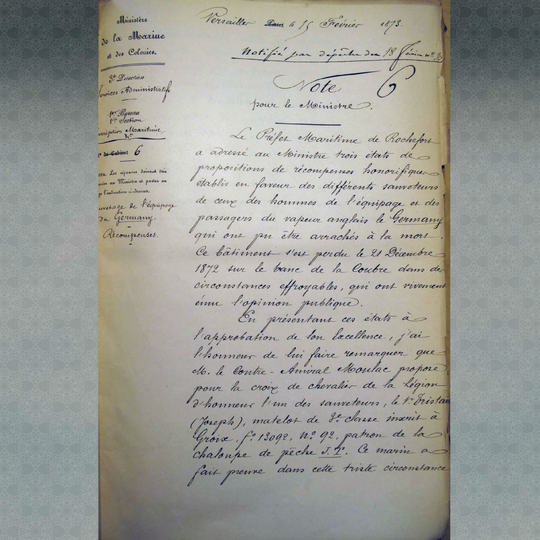 Ministère
de la Marine
et des Colonies.
3e Direction
Services Administratifs
1er Bureau
1re Section
Inscription Maritime
No
No du Cabinet 6
Sauvetage de l'équipage
du Germany
Récompenses.
Versailles, le 15 Février 1873.
Notifié par dépêche du 18 Février
Note 6
pour le Ministre.
Le Préfet Maritime de Rochefort
a adressé au Ministre trois états de
propositions de récompenses honorifiques
établis en faveur des différents sauveteurs
de ceux des hommes de l'équipage et des
passagers du vapeur anglais le Germany
qui ont pu être arrachés à la mort.
Ce bâtiment s'est perdu le 21 Décembre
1872 sur le banc de la Coubre dans de
circonstances effroyables, qui ont vivement
ému l'opinion publique.
En présentant ces états à
l'approbation de Son Excellence, j'ai
l'honneur de lui faire remarquer que
M. le Contre-Amiral Moulac propose
pour la croix de chevalier de la Légion
d'honneur l'un des sauveteurs, le Sr Tristan
(Joseph), matelot de 3e classe inscrit à
Groix, fo 13092, No 92, patron de la
chaloupe de pêche Ce marin a
fait preuve dans cette triste circonstance